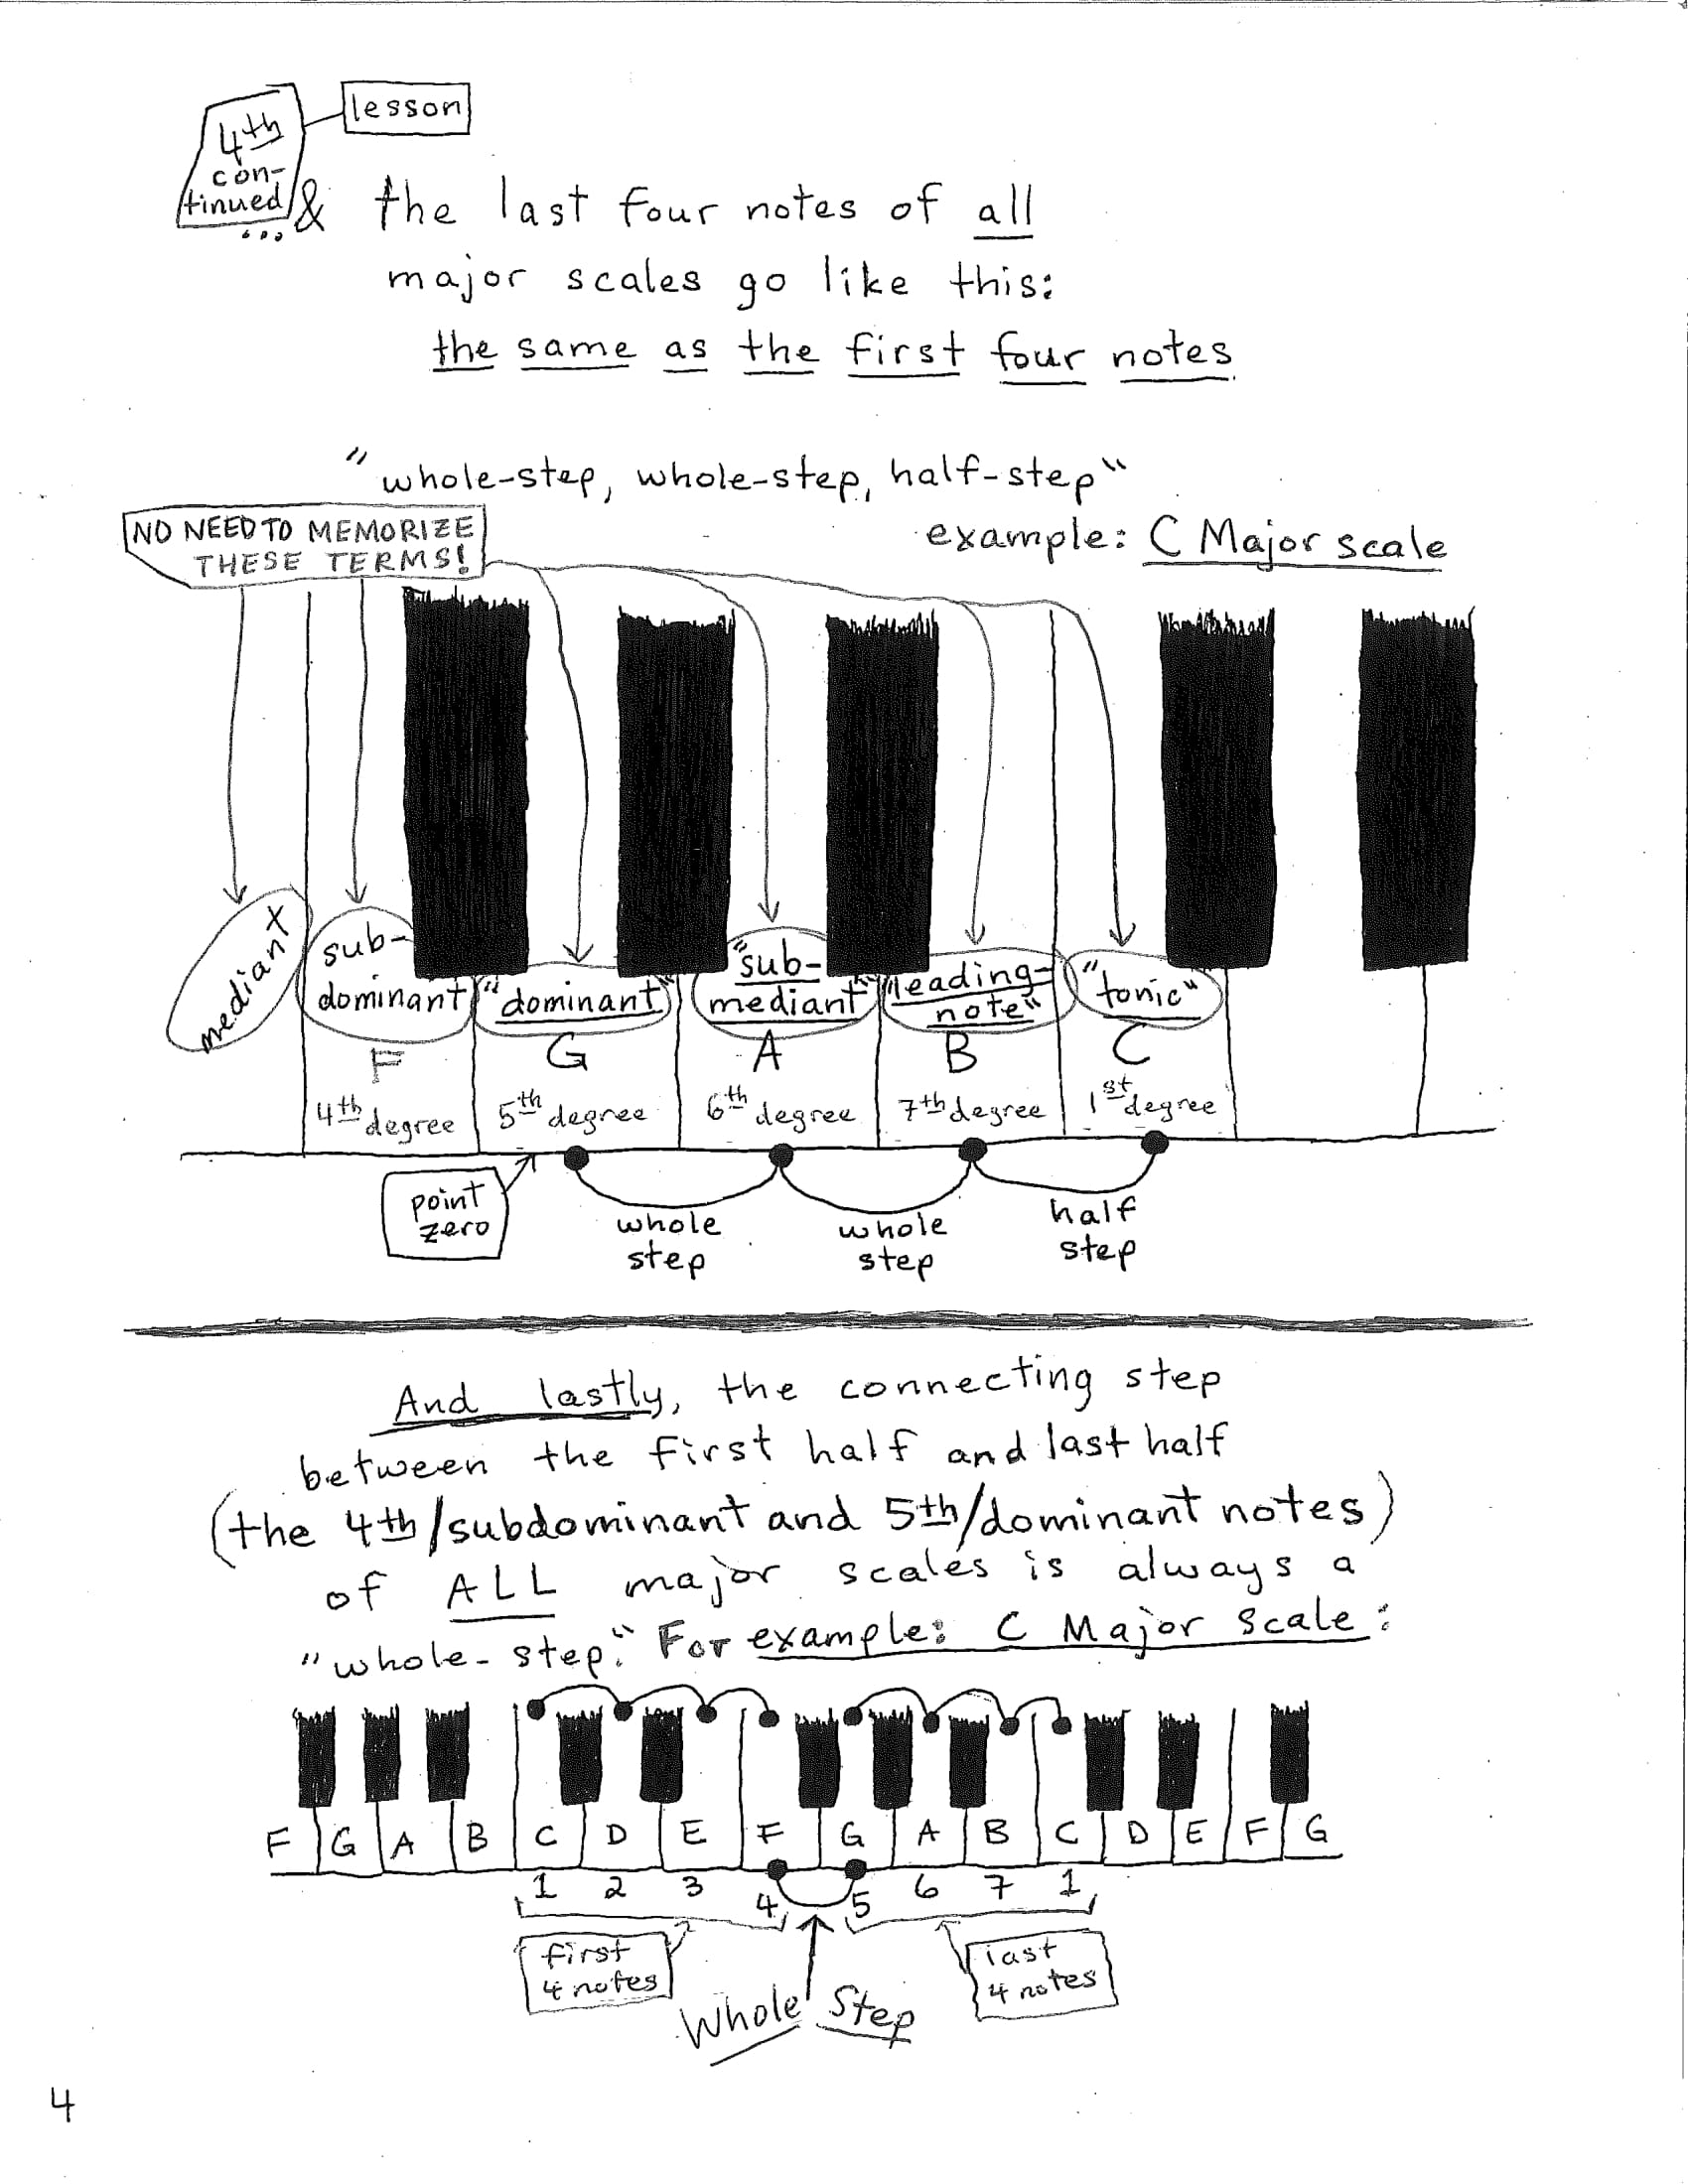 lesson
4th
con-
tinued
...
& the last four notes of all
major scales go like this:
the same as the first four notes
"whole-step, whole-step, half-step"
NO NEED TO MEMORIZE
THESE TERMS!
example: C Major scale
mediant
sub-
dominant
"dominant"
"sub-
mediant"
"leading-
note"
"tonic"
F G A B C
4th degree 5th degree 6th degree 7th degree 1st degree
point
zero
whole
step
whole
step
half
step
And lastly, the connecting step
between the first half and last half
(the 4th/subdominant and 5th/dominant notes)
of ALL major scales is always a
"whole-step." For example: C Major Scale:
F G A B C D E F G A B C D E F G
1 2 3 4 5 6 7 1
first
4 notes
last
4 notes
Whole Step
4